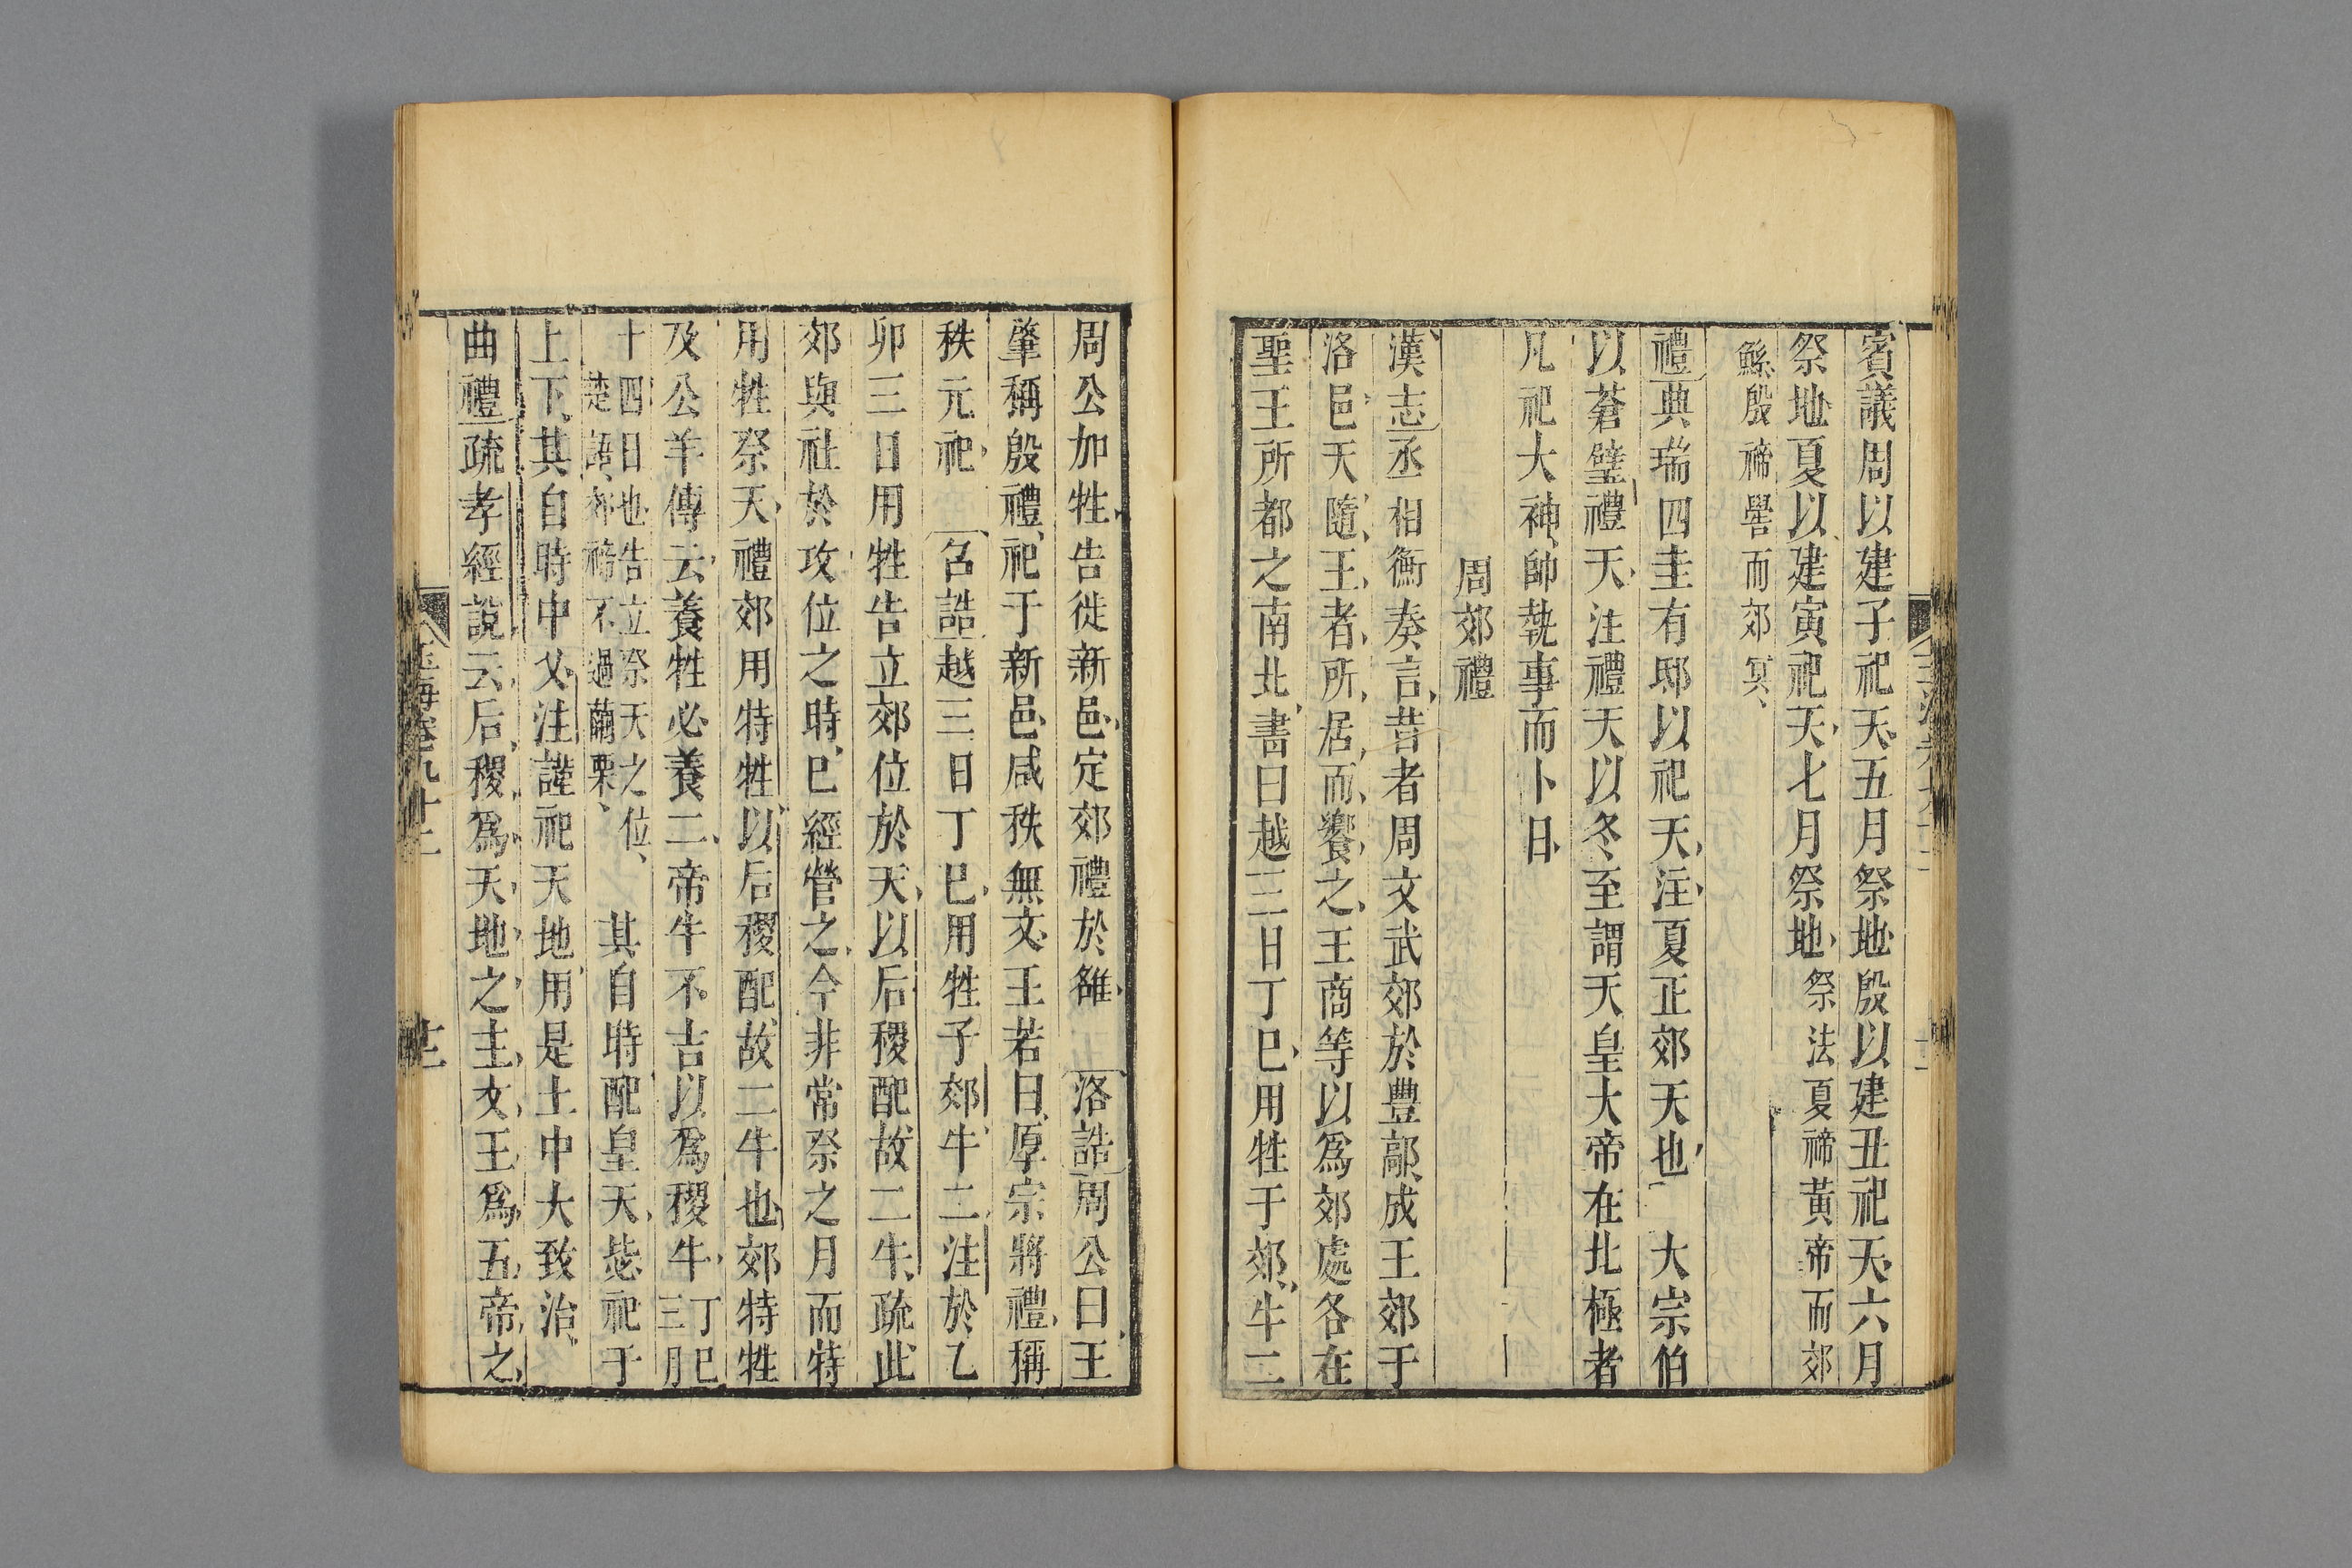 賓議周以建子祀天五月祭地殷以建丑祀天六月
祭地夏以建寅祀天七月祭地祭法夏禘黃帝而郊
鯀殷禘嚳而郊冥
禮典瑞四圭有邸以祀天注夏正郊天也 大宗伯
以蒼璧禮天注禮天以冬至謂天皇大帝在北極者
凡祀大神帥執事而卜日
周郊禮
漢志丞相衡奏言昔者周文武郊於豐鄗成王郊于
洛邑天隨王者所居而饗之王商等以為郊處各在
聖王所都之南北書曰越三日丁巳用牲于郊牛二
周公加牲告徙新邑定郊禮於雒 洛誥周公曰王
肇稱殷禮祀于新邑咸秩無文王若曰厚宗將禮稱
秩元祀 召誥越三日丁巳用牲于郊牛二注於乙
卯三日用牲告立郊位於天以后稷配故二牛疏此
郊與社於攻位之時已經營之今非常祭之月而特
用牲祭天禮郊用特牲以后稷配故二牛也郊特牲
及公羊傳云養牲必養二帝牛不吉以為稷牛丁巳
三月
十四日也告立祭天之位
楚語郊禘不過繭栗 其自時配皇天毖祀于
上下其自時中乂注謹祀天地用是土中大致治
曲禮疏孝經說云后稷為天地之主文王為五帝之
玉海卷九十二